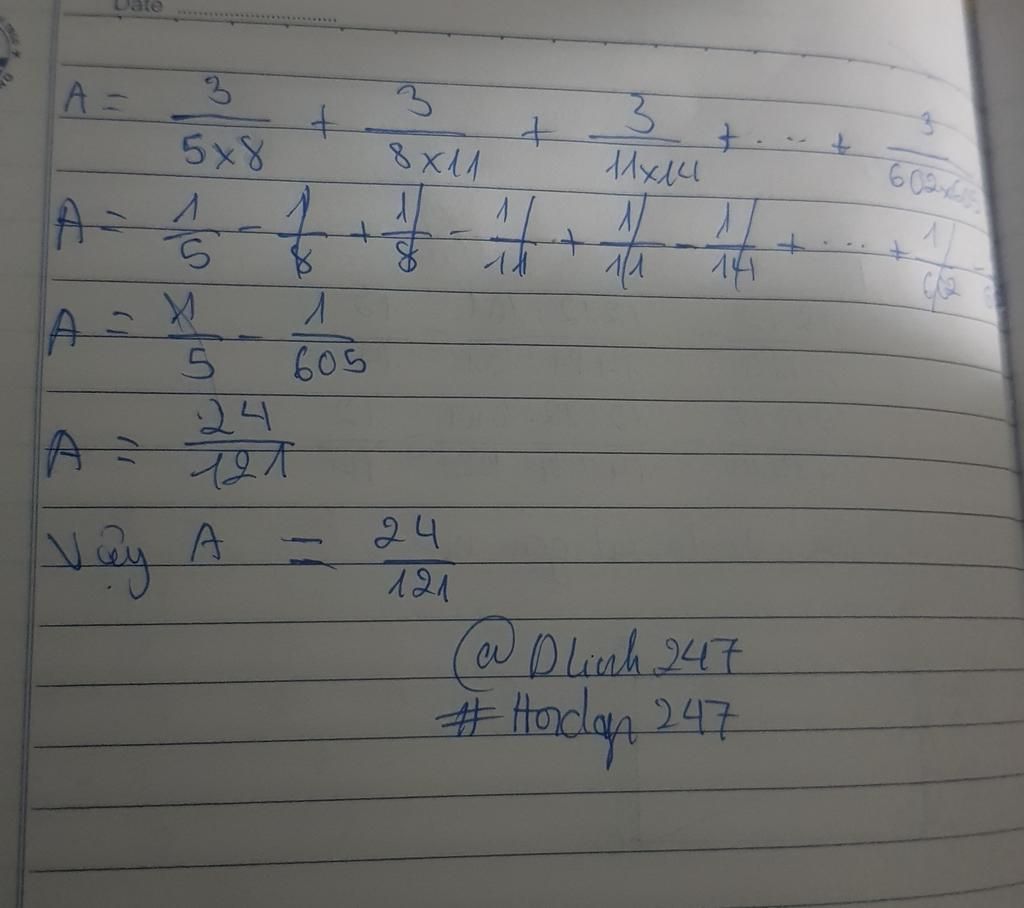 Date
A = 3/(5x8) + 3/(8x11) + 3/(11x14) + ... + 3/(602x605)
A = 1/5 - 1/8 + 1/8 - 1/11 + 1/11 - 1/14 + ... + 1/602 -
A = 1/5 - 1/605
A = 24/121
Vậy A = 24/121
@Dlinh247
#Hoidap247